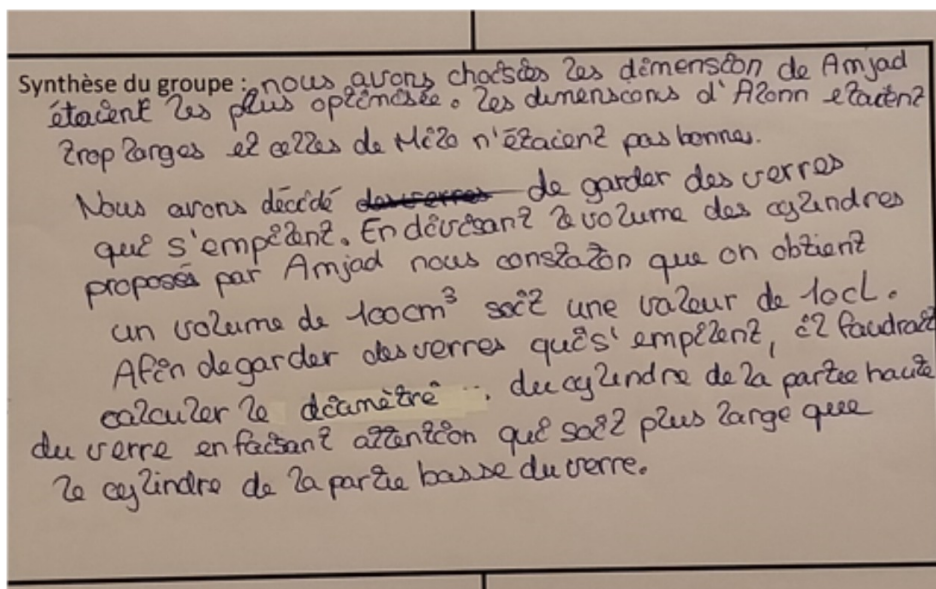 Synthèse du groupe : nous avons choisies les dimension de Amjad
étaient les plus optimisée. les dimenscons d'Alonn etaient
trop larges et celles de Milo n'étaient pas bonnes.
Nous avons décidé de garder des verres
qui s'empilent. En divisant le volume des cylindres
proposés par Amjad nous constaton que on obtient
un volume de 100cm³ soit une valeur de 10cL.
Afin de garder des verres qui s'empilent, il faudrait
calculer le diamètre du cylindre de la partie haute
du verre en faisant attention qui soit plus large que
le cylindre de la partie basse du verre.